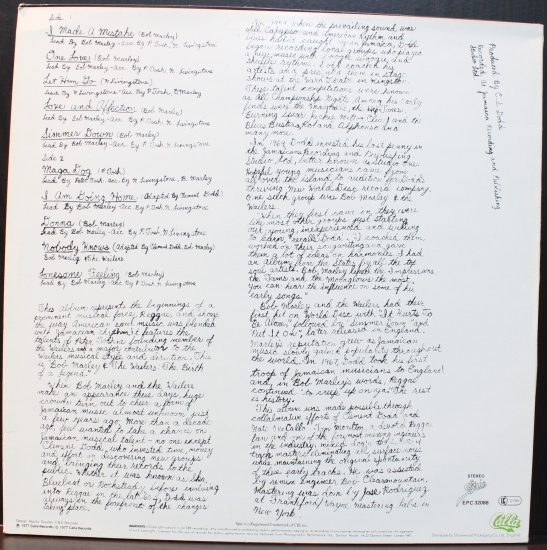 Side 1
I Made A Mistake (Bob Marley)
Lead By Bob Marley - Acc. By P. Tosh, N. Livingstone
One Love (Bob Marley)
Lead By Bob Marley - Acc. By P. Tosh, N. Livingstone
Let Him Go (N. Livingstone)
Love and Affection (Bob Marley)
Lead By Bob Marley - Acc. By P. Tosh, N. Livingstone
Simmer Down (Bob Marley)
Lead By Bob Marley - Acc. By P. Tosh, N. Livingstone
Side 2
Maga Dog (P. Tosh)
Lead By Peter Tosh - Acc. By N. Livingstone, B. Marley
I Am Going Home (Adapted By Clement Dodd)
Lead By Bob Marley - Acc. By P. Tosh, N. Livingstone
Donna (Bob Marley)
Lead By Bob Marley - Acc. By P. Tosh, N. Livingstone
Nobody Knows (Adapted By Clement Dodd, Bob Marley)
Bob Marley & The Wailers
Lonesome Feeling (Bob Marley)
Lead By Bob Marley - Acc. By P. Tosh, N. Livingstone
This album represents the beginnings of a
prominent musical force, Reggae, and shows
the way American soul music was blended
with Jamaican rhythm. It features the
talents of Peter Tosh, a founding member of
the Wailers and a major contributor to the
Wailers musical style and direction. This
is "Bob Marley & The Wailers The Birth
of a Legend."
When Bob Marley and the Wailers
make an appearance these days, huge
crowds turn out to cheer a form of
Jamaican music almost unknown just
a few years ago. More than a decade
ago, few wanted to take a chance on
Jamaican musical talent - no one except
Clement Dodd, who invested time, money
and effort in discovering new groups
and bringing their records to the
public. Whether it was known as Ska,
Bluebeat or Rocksteady before evolving
into Reggae in the late 60's, Dodd was
always in the forefront of the changes
taking place.
In 1959 when the prevailing sound was
still Calypso and American Rhythm and
Blues
began recording local groups who played
shuffle rhythms. I'd
artists
shows at the Ward Theatre in Kingston.
These talent competitions were known
as All Championship Nights. Among his early
finds were the Maytals, the Hep-Tones,
Burning Spear, Jackie Mittoo
Blues Busters, Roland Alphonso and
many more.
In 1964 Dodd invested his last penny in
the Jamaican Recording and Publishing
Studio Ltd., better known as Studio One.
Hopeful young musicians came from
all over the island to audition for Dodd's
thriving New World Disc record company.
One such group was Bob Marley & the
Wailers.
"When they first came in they were
like most other groups just starting
out, young, inexperienced and willing
to learn," recalls Dodd. "I coached them,
worked on their songwriting and gave
them a lot of ideas on harmonies. I had
an album from the States by all the top
soul artists. Bob Marley liked the Impressions,
the Tams and the Moonglows the most.
You can hear the influence on some of his
early songs."
Bob Marley and the Wailers had their
first hit on World Disc with "It Hurts To
Be Alone," followed by "Simmer Down" and
"Put It On," later released in England.
Marley's reputation grew as Jamaican
music slowly gained popularity throughout
the world. In 1967, Dodd took his first
troop of Jamaican musicians to England
and, in Bob Marley's words, Reggae
continued "to creep up on ya." The rest
is history.
This album was made possible through
collaborative efforts of Clement Dodd and
Nate McCalla. Tom Moulton, a devoted Reggae
fan and one of the foremost mixing engineers
in the industry, mixed
tracks eliminating all surface noise
while maintaining the original spontaneity
of these early tracks. He was assisted
by senior engineer Bob Clearmountain.
Mastering was done by Jose Rodriguez
at Frankford/Wayne Mastering Labs in
New York.
Produced by C.S. Dodd
Recorded at Jamaica Recording and Publishing
Studio Ltd.
STEREO
EPC 32066
calla
℗ 1977 Calla Records © 1977 Calla Records